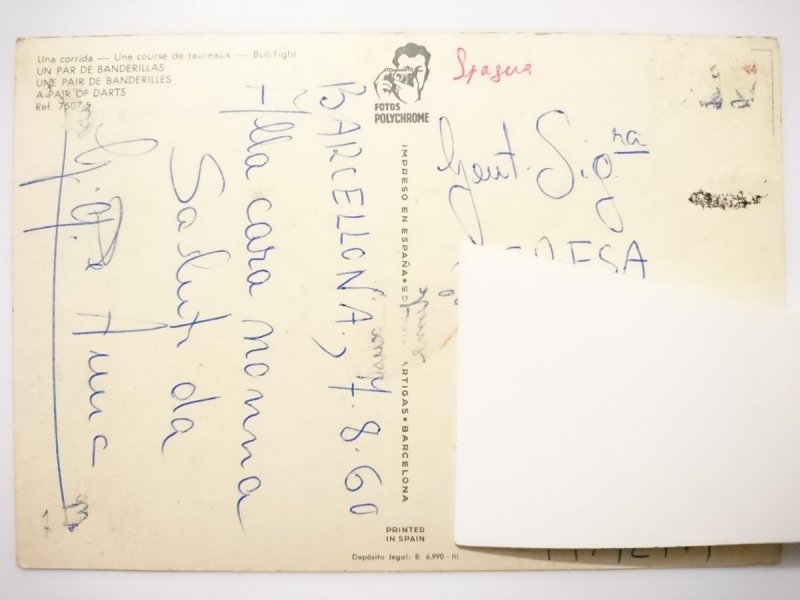 Una corrida — Une course de taureaux — Bull-fight
UN PAR DE BANDERILLAS
UNE PAIR DE BANDERILLES
A PAIR OF DARTS
Ref. 7507 S
FOTOS
POLYCHROME
Spagna
BARCELLONA, 7.8.60
Alla cara nonna
Saluti da
Anna
IMPRESO EN ESPAÑA
ARTIGAS • BARCELONA
Gent. Sig.ra
PRINTED
IN SPAIN
Depósito legal: B 6.990 - III